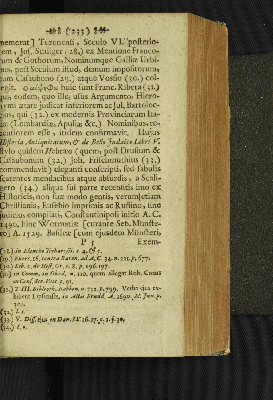 (233)
nemorat] Turonensi, Seculo VI. posterio-
rem, Jos. Scaliger (28.) ex Mentione Franco-
rum & Gothorum, Nominumque Galliæ Urbi-
um, post Seculum istud, demum impositorum,
cum Casaubono (29.) atque Vossio (30.) col-
legit. huic sunt Franc. Ribera (31.)
qui eodem, quo ille, usus Argumento, Hiero-
nymi ætate judicat inferiorem ac Jul. Bartoloc-
cius, qui (32.) ex modernis Provinciarum Ita-
liæ (Lombardiæ, Apuliæ &c.) Nominibus, re-
centiorem esse, itidem confirmavit, Hujus
Historia Antiquitatum, & de Bello Judaico Libri V.
stylo quidem Hebræo (quem, post Drusium &
Casaubonum (32.) Joh. Frischmuthius (33.)
commendavit) eleganti conscripti, sed fabulis
scatentes mendacibus atque absurdis, a Scali-
gero (34.) aliqua sui parte recenitis imo ex
Historicis, non suæ modo gentis, verum etiam
Christianis, Eusebio Imprimis ac Rufino, sine
judicio compilati, Constantinopoli initio A. C.
1490. hinc Wormatiæ [curante Seb. Münste-
ro] A. 1529. Basileæ [cum ejusdem Münsteri,
P 5 Exem-
(28.) in Elencho Trihæresii. c. 4. f.
(29.) Exerc. 16. contra Baron. ad A. C. 34. n. 121. p. 677.
(30.) Lib. 2. de Hist. Gr. c. 8. p. 196. 197.
(31.) in Comm. in Obad. n. 120. quem allegat Rob. Cocus
in Cens. Scr. Vet. p. 91.
(32.) T III. Biblioth. Rabbin. p. 792. p. 799. Verba qua ex-
hibent Lipsienses, in Actis Erudit. A. 1690. M. Jun. p.
304.
(32.) l. c.
(33.) V. Diss. Ejus in Dan. IX. 26. 27. c. 3. §. 30.
(34.) l. c.